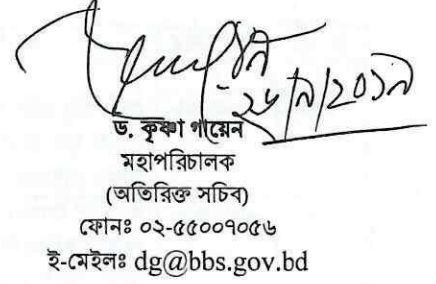 ২৬/৯/২০১৯
ড. কৃষ্ণা গায়েন
মহাপরিচালক
(অতিরিক্ত সচিব)
ফোনঃ ০২-৫৫০০৭০৫৬
ই-মেইলঃ dg@bbs.gov.bd